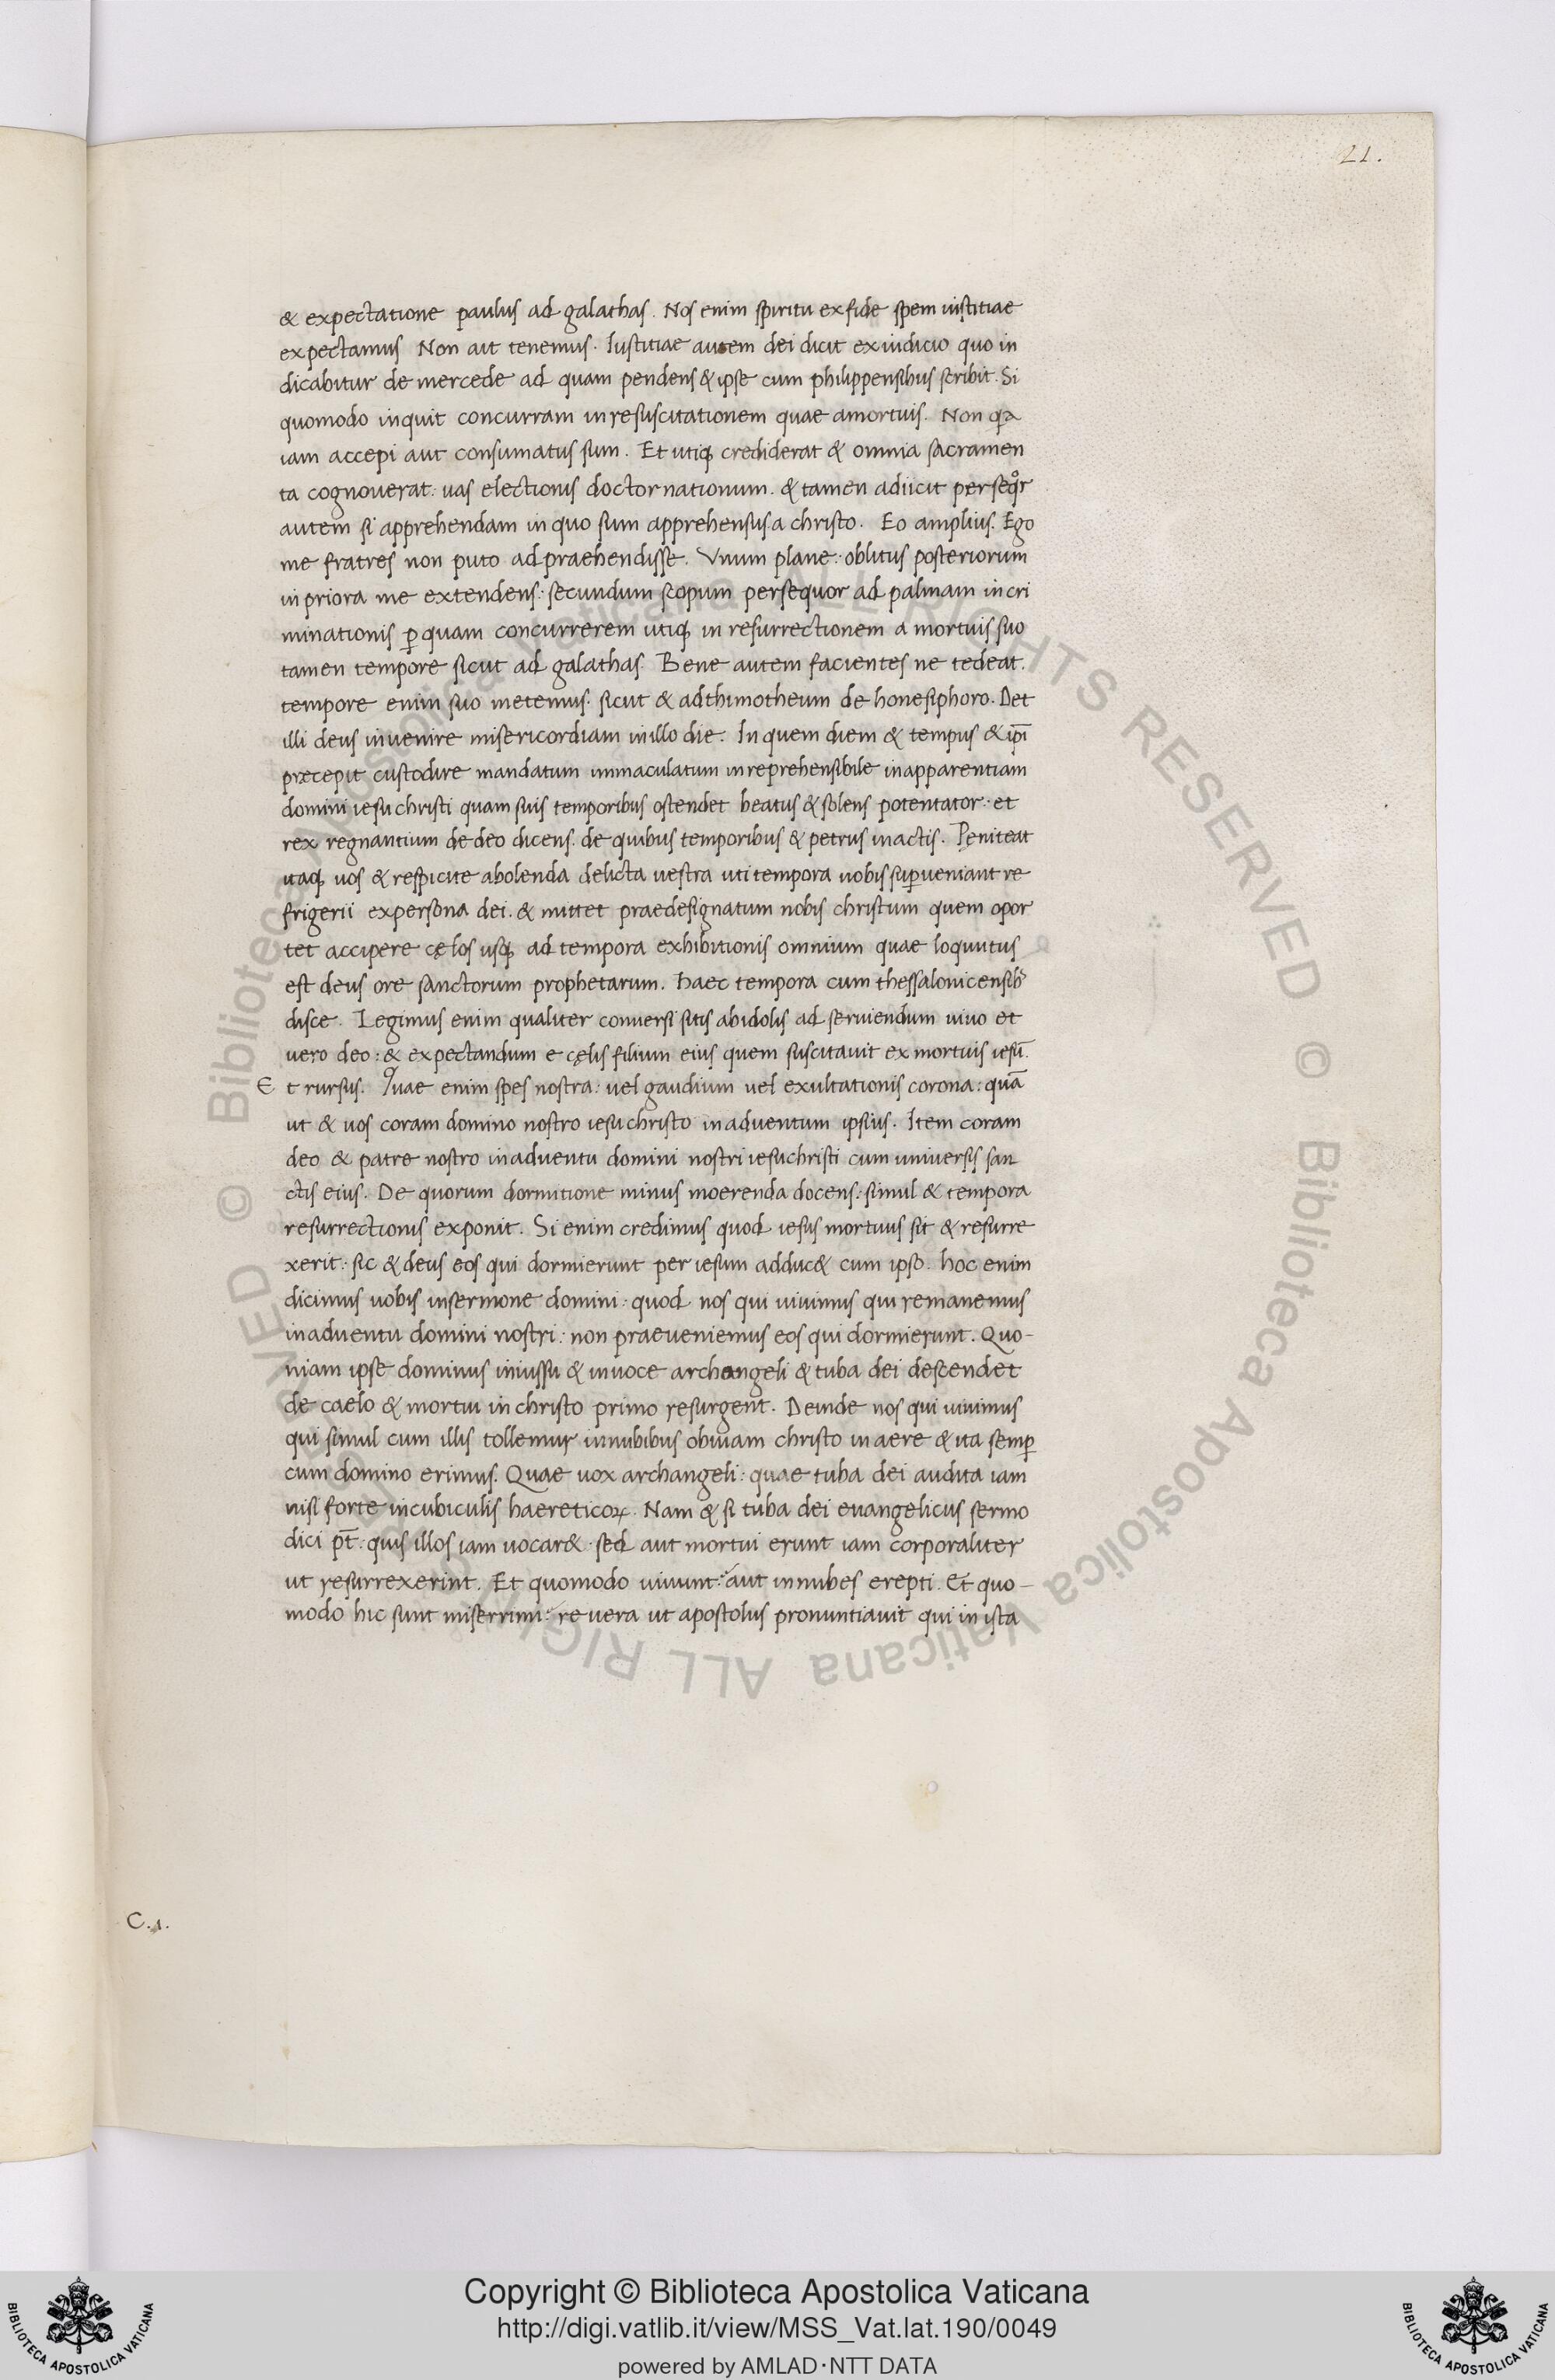 21.
& expectatione paulus ad galathas. Nos enim spiritu ex fide spem iustitiae
expectamus Non ait tenemus. Iustitiae autem dei dicit ex iudicio quo in
dicabitur de mercede ad quam pendens & ipse cum philippensibus scribit. Si
quomodo inquit concurram in resuscitationem quae amortuis. Non qa
iam accepi aut consumatus sum. Et utiq; crediderat & omnia sacramen
ta cognouerat: uas electionis doctor nationum. & tamen adiicit perseqr
autem si apprehendam in quo sum apprehensus a christo. Eo amplius. Ego
me fratres non puto adpraehendisse. Vnum plane: oblitus posteriorum
in priora me extendens: secundum scopum persequor ad palmam incri
minationis ꝑ quam concurrerem utiq; in resurrectionem a mortuis suo
tamen tempore sicut ad galathas. Bene autem facientes ne tedeat.
tempore enim suo metemus. sicut & adthimotheum de honesiphoro. Det
illi deus inuenire misericordiam in illo die. In quem diem & tempus & ipī
precepit custodire mandatum immaculatum inreprehensibile inapparentiam
domini iesu christi quam suis temporibus ostendet beatus & solens potentator: et
rex regnantium de deo dicens. de quibus temporibus & petrus inactis. Pęniteat
itaq; uos & respicite abolenda delicta uestra uti tempora uobis suꝑueniant re
frigerii expersona dei. & mittet praedesignatum nobis christum quem opor
tet accipere cęlos usq; ad tempora exhibitionis omnium quae loquutus
est deus ore sanctorum prophetarum. haec tempora cum thessalonicensib
disce. Legimus enim qualiter conuersi sitis abidolis ad seruiendum uiuo et
uero deo: & expectandum e cęlis filium eius quem suscitauit ex mortuis iesū.
E t rursus. Quae enim spes nostra: uel gaudium uel exultationis corona: quā
ut & uos coram domino nostro iesu christo inaduentum ipsius. Item coram
deo & patre nostro inaduentu domini nostri iesuchristi cum uniuersis san
ctis eius. De quorum dormitione minus moerenda docens: simul & tempora
resurrectionis exponit. Si enim credimus quod iesus mortuus sit & resurre
xerit: sic & deus eos qui dormierunt per iesum adduc& cum ipso. hoc enim
dicimus uobis insermone domini: quod nos qui uiuimus qui remanemus
inaduentu domini nostri: non praeueniemus eos qui dormierunt. Quo-
niam ipse dominus iniussu & inuoce archangeli & tuba dei descendet
de caelo & mortui in christo primo resurgent. Deinde nos qui uiuimus
qui simul cum illis tollemur innubibus obuiam christo in aere & ita semꝑ
cum domino erimus. Quae uox archangeli: quae tuba dei audita iam
nisi forte incubiculis haereticoꝝ. Nam & si tuba dei euangelicus sermo
dici pt̄: quis illos iam uocar& sed aut mortui erunt iam corporaliter
ut resurrexerint. Et quomodo uiuunt: aut innubes erepti. Et quo-
modo hic sunt miserrimi: re uera ut apostolus pronuntiauit qui in ista
C.1.
Copyright © Biblioteca Apostolica Vaticana
http://digi.vatlib.it/view/MSS_Vat.lat.190/0049
powered by AMLAD·NTT DATA
BIBLIOTECA APOSTOLICA VATICANA
BIBLIOTECA APOSTOLICA VATICANA
© Biblioteca Apostolica Vaticana ALL RIGHTS RESERVED © Biblioteca Apostolica Vaticana ALL RIGHTS RESERVED